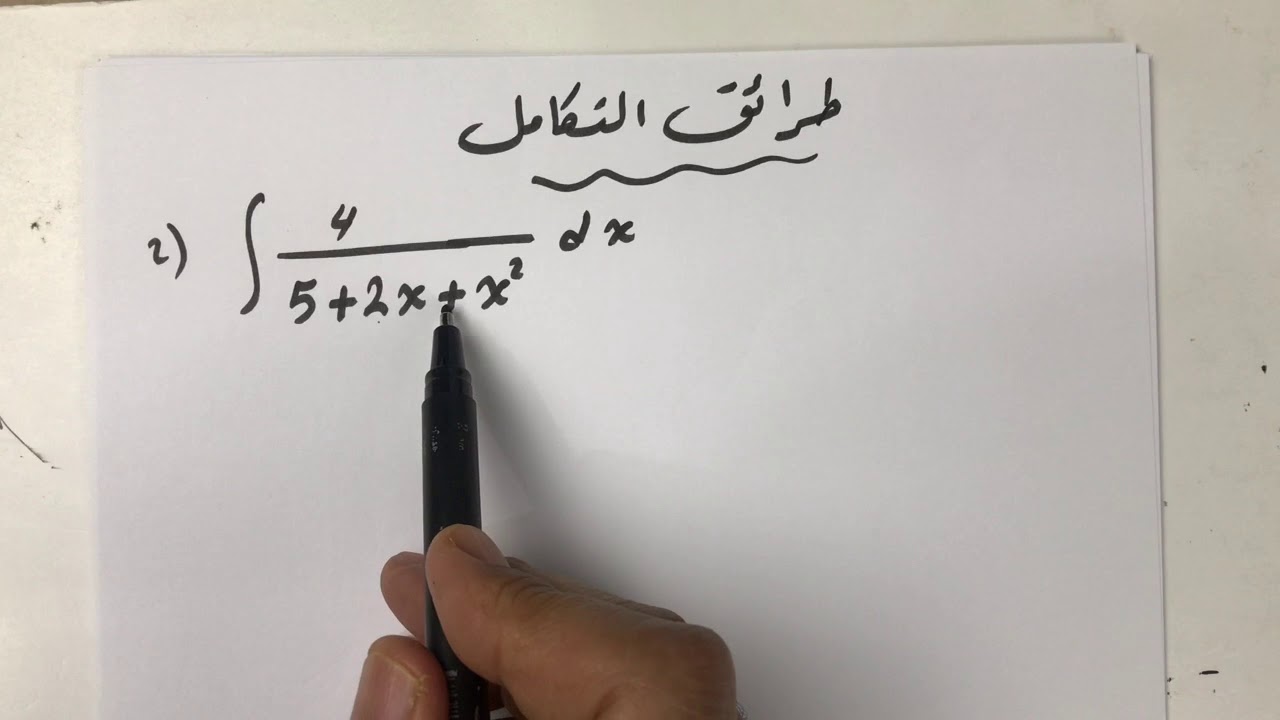 طرائق التكامل
2) ∫ 4 / (5+2x+x²) dx